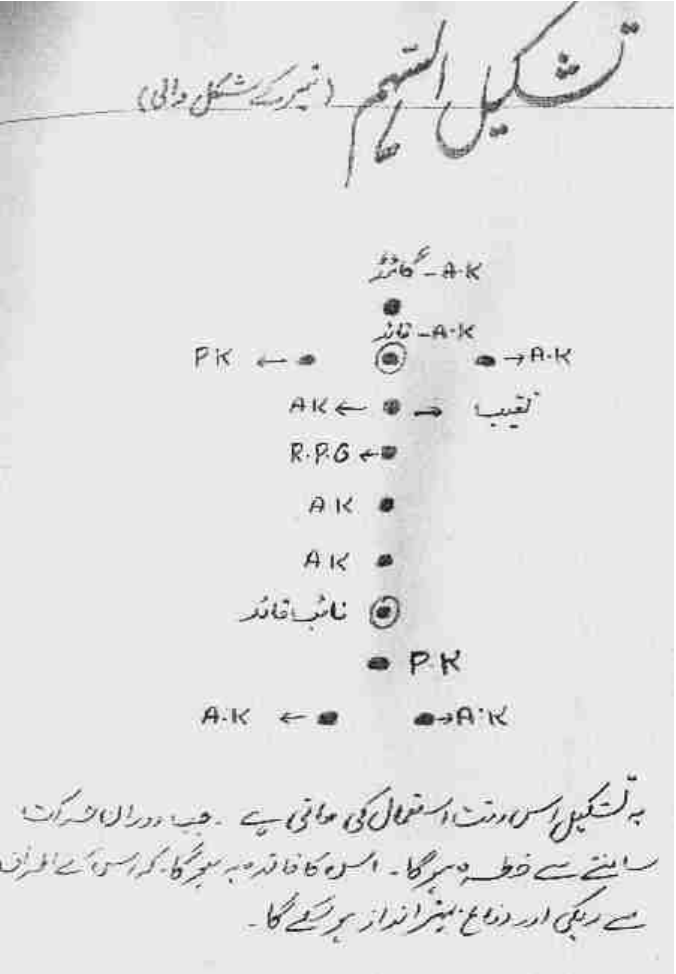 تشکیل السّہم (تیر کے شکل والی)
A.K – گائڈ
A.K – قائد
PK ← → A.K
AK ← → نقیب
R.P.G ←
AK
AK
نائب قائد
P.K
A.K ← → A.K
یہ تشکیل اس وقت استعمال کی جاتی ہے ۔ جب دوران
سامنے سے خطرہ ہو گا ۔ اس کا فائدہ یہ ہو گا ۔ کہ اس کے اطراف
سے ریکی اور دفاع بہتر انداز ہو سکے گا ۔